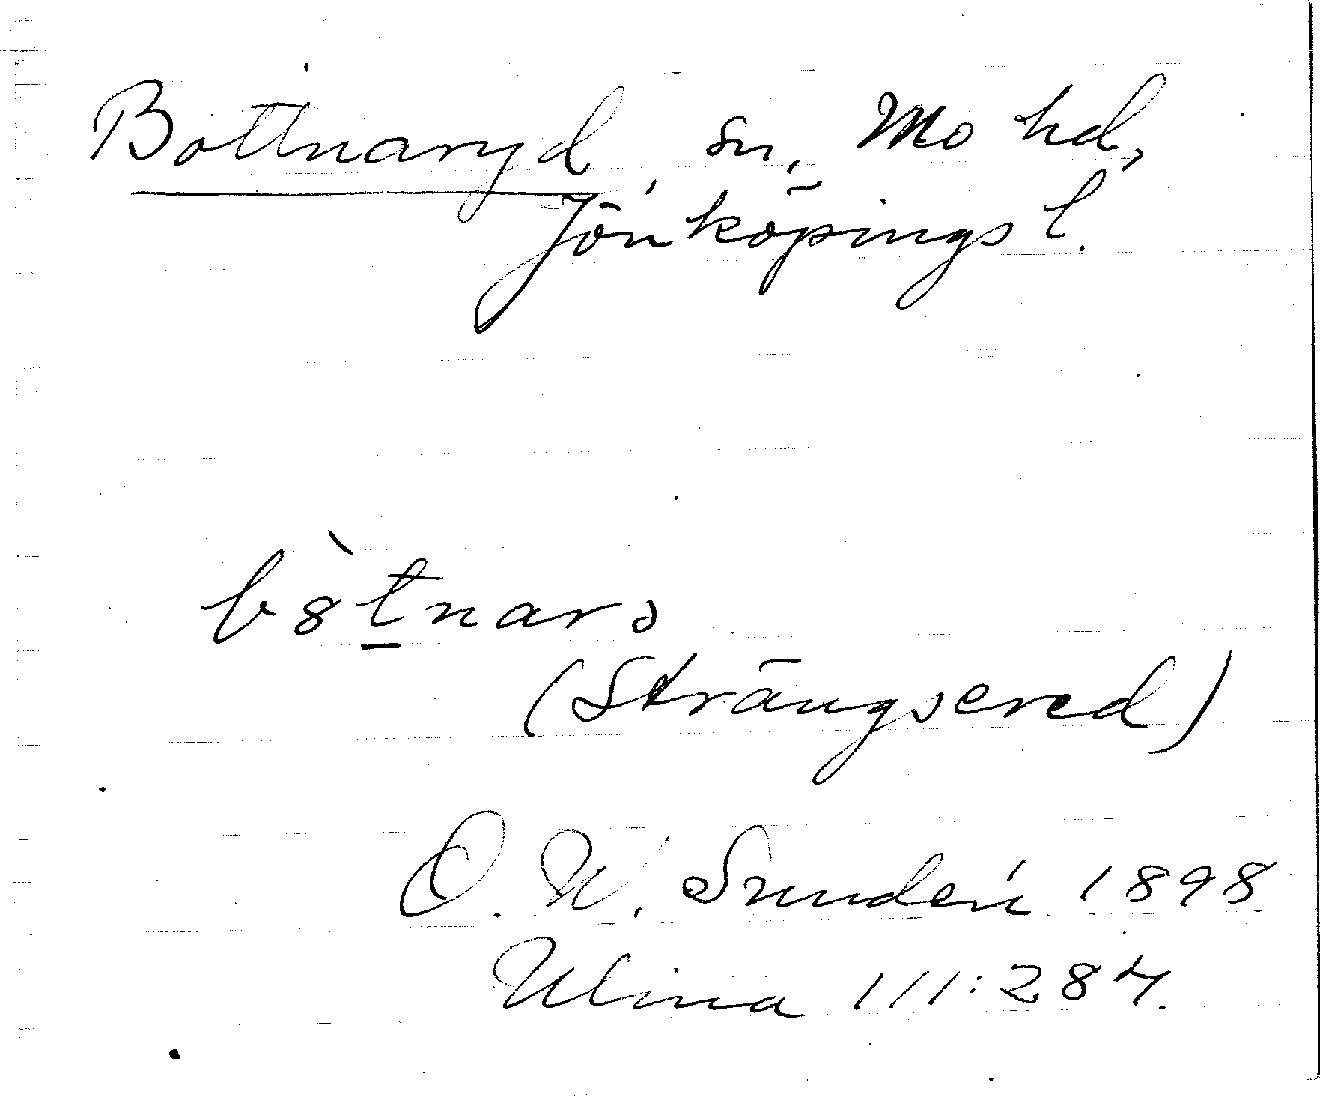 Bottnaryd, sn, Mo hd,
Jönköpings l.
(Strängsered)
O. W. Sundén 1898
Ulma 111:284.